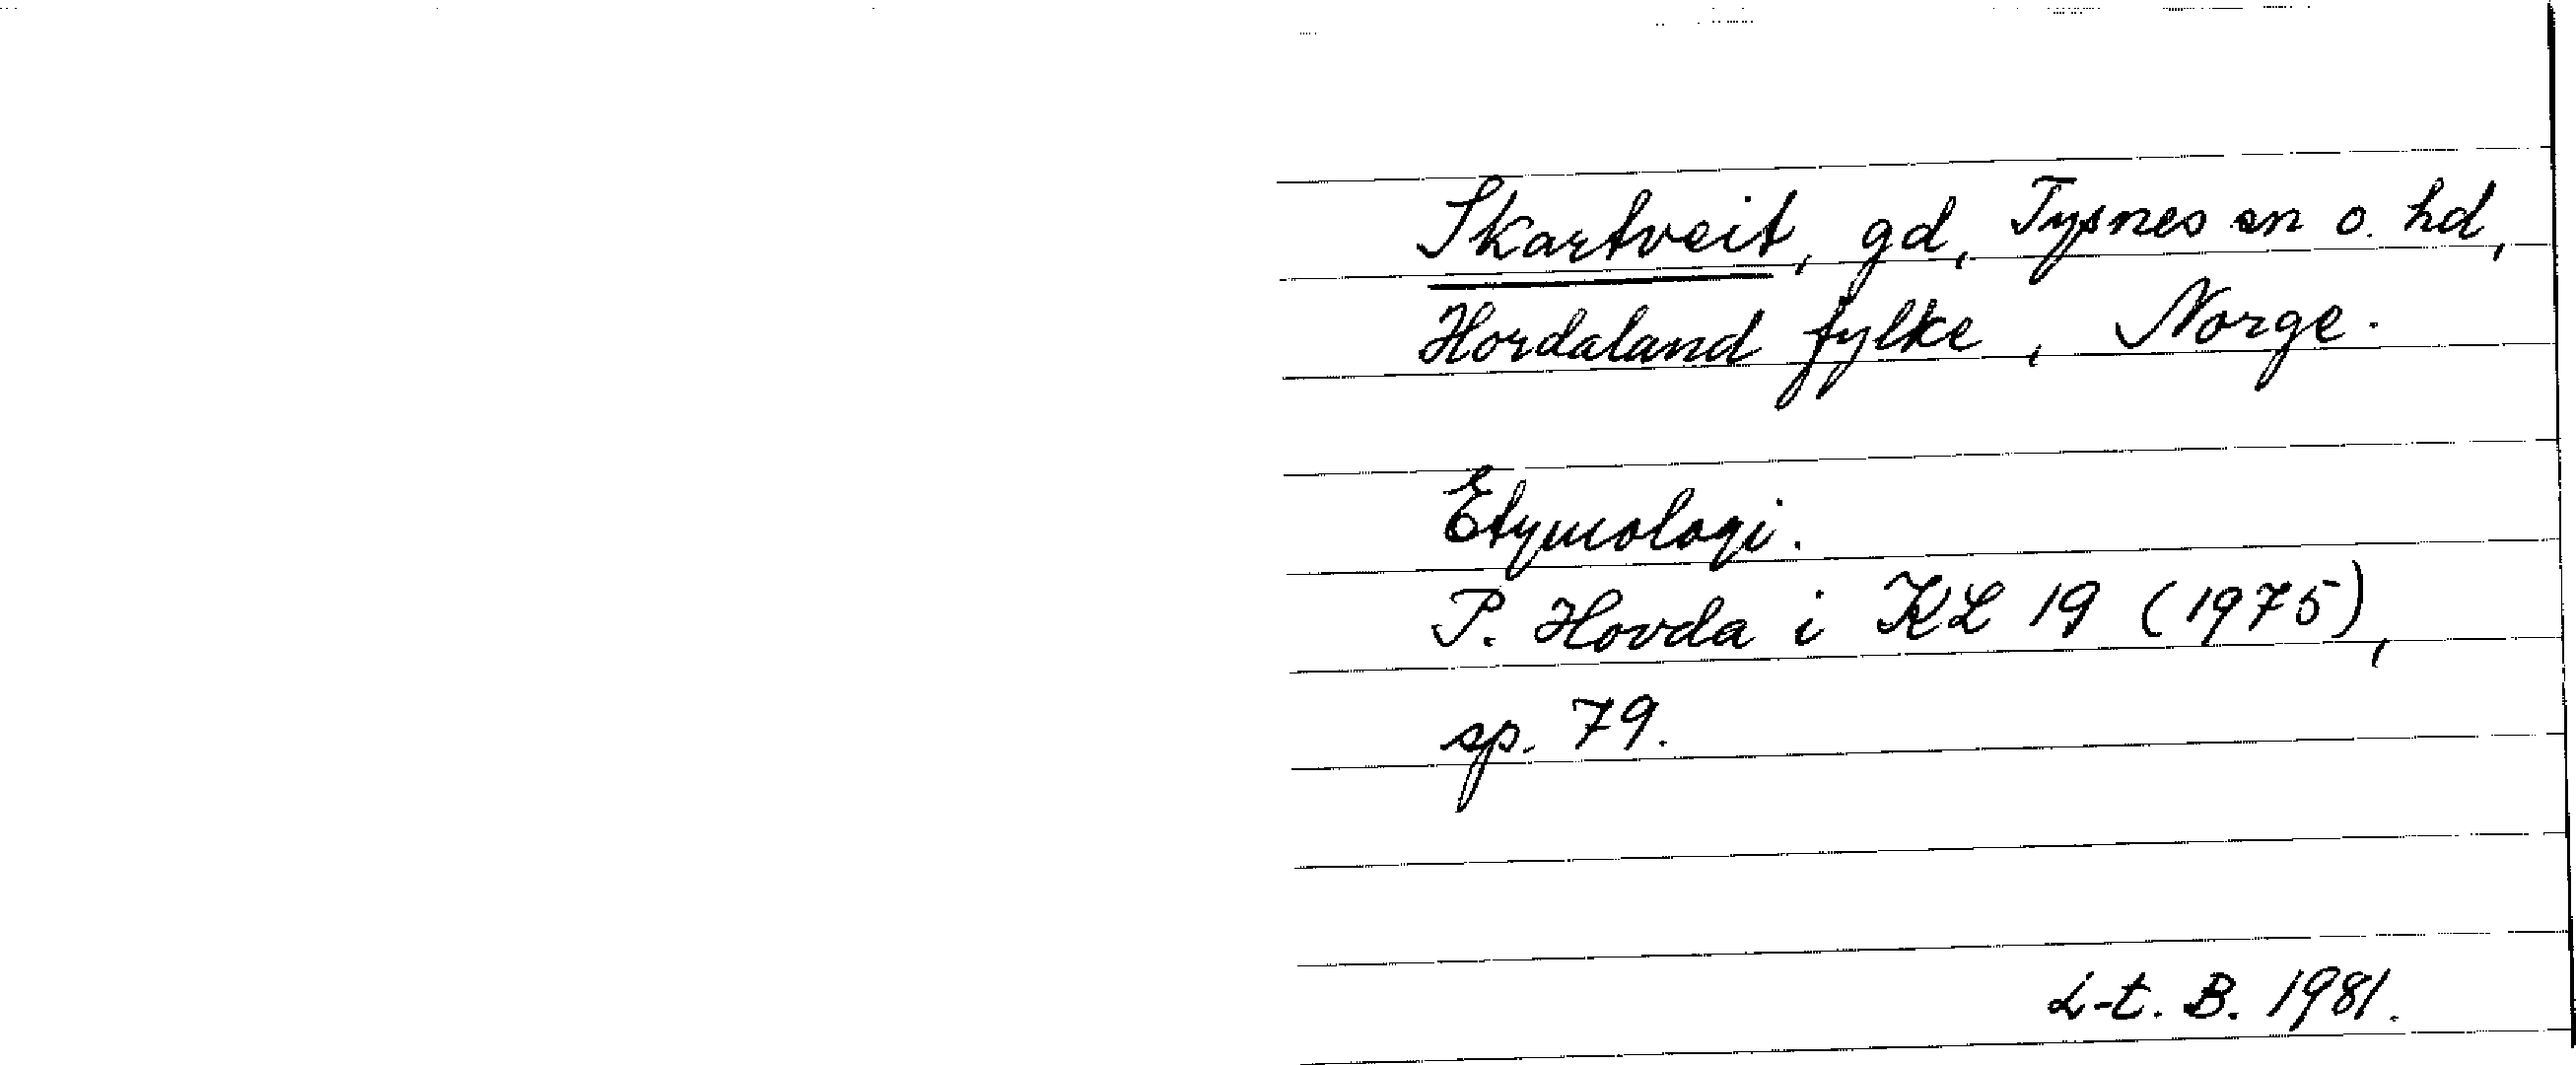 Skartveit, gd, Tysnes sn o. hd,
Hordaland fylke, Norge.
Etymologi.
P. Hovda i KL 19 (1975),
sp. 79.
L-t. B. 1981.